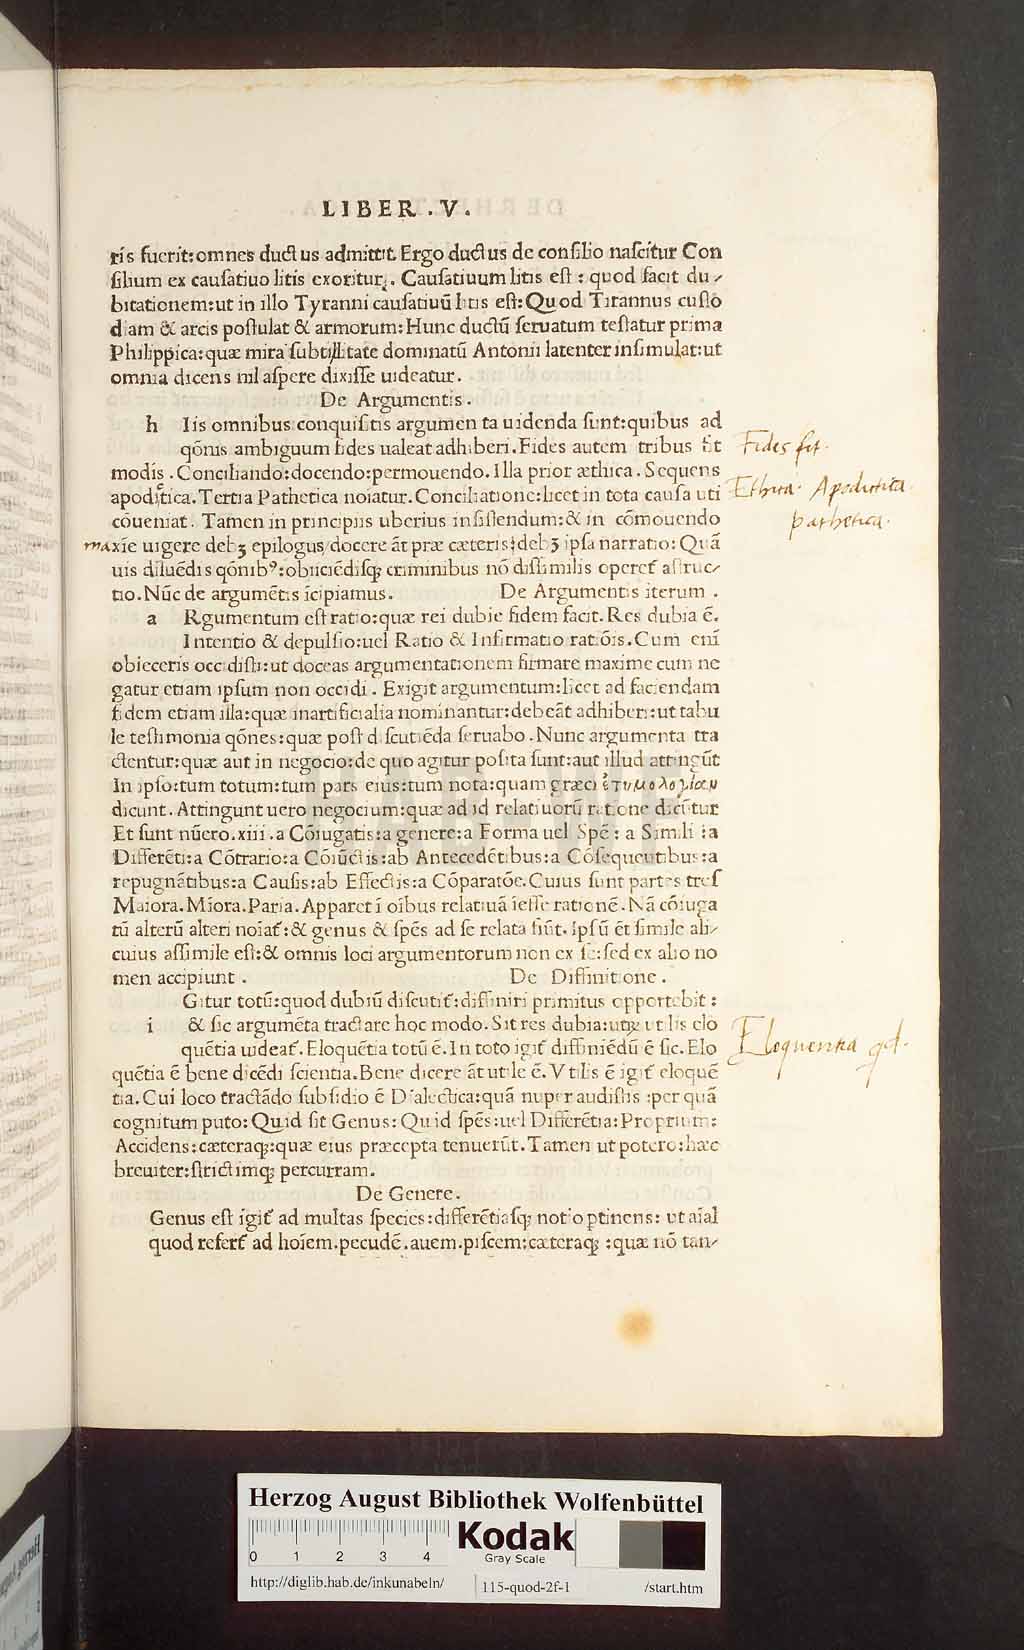 LIBER .V.
ris fuerit:omnes ductus admittit. Ergo ductus de consilio nascitur Con
silium ex causatiuo litis exoritur. Causatiuum litis est: quod facit du-
bitationem:ut in illo Tyranni causatiuũ litis est:Quod Tirannus custo
diam & arcis postulat & armorum:Hunc ductũ seruatum testatur prima
Philippica:quæ mira subtillitate dominatũ Antonii latenter insimulat:ut
omnia dicens nil aspere dixisse uideatur.
De Argumentis.
h Iis omnibus conquisitis argumen ta uidenda sunt:quibus ad
qõnis ambiguum fides ualeat adhiberi. Fides autem tribus fit
Fides fit.
modis. Conciliando:docendo:permouendo. Illa prior æthica. Sequens
apodi^ctica. Tertia Pathetica noiatur. Conciliatione:licet in tota causa uti
Ethica. Apodictica.
cõueniat. Tamen in principiis uberius insistendum:& in cõmouendo
pathetica.
maxĩe urgere debꝫ epilogus/docere ãt præ cæteris:debꝫ ipsa narratio: Quã
uis diluẽdis qõnibꝰ:obiiciẽdisqꝫ criminibus nõ dissimilis operet̃ astruc-
tio. Nũc de argumẽtis ĩcipiamus. De Argumentis iterum.
a Rgumentum est ratio:quæ rei dubie fidem facit. Res dubia ẽ.
Intentio & depulsio:uel Ratio & Infirmatio ratiõis. Cum enĩ
obieceris occidisti:ut doceas argumentationem firmare maxime cum ne
gatur etiam ipsum non occidi. Exigit argumentum:licet ad faciendam
fidem etiam illa:quæ inartificialia nominantur:debeãt adhiberi:ut tabu
le testimonia qõnes:quæ post discutiẽda seruabo. Nunc argumenta tra
ctentur:quæ aut in negocio:de quo agitur posita sunt:aut illud attingũt
In ipso:tum totum:tum pars eius:tum nota:quam græci ἐτυμολογίαν
dicunt. Attingunt uero negocium:quæ ad id relatiuorũ ratione dicũtur
Et sunt nũero.xiii.a Cõiugatis:a genere:a Forma uel Spẽ: a Simili :a
Differẽti:a Cõtrario:a Cõiũctis:ab Antecedẽtibus:a Cõsequentibus:a
repugnãtibus:a Causis:ab Effectis:a Cõparatõe. Cuius sunt partes tres
Maiora. Mĩora. Paria. Apparet ĩ oĩbus relatiuã iesse rationẽ. Nã cõiuga
tũ alterũ alteri noiat̃:& genus & spẽs ad se relata siũt. Ipsũ ẽt simile ali-
cuius assimile est:& omnis loci argumentorum non ex se:sed ex alio no
men accipiunt. De Diffinitione.
Gitur totũ:quod dubiũ discutit̃:diffiniri primitus opportebit:
i & sic argumẽta tractare hoc modo. Sit res dubia:utꝝ utilis elo
quẽtia uideat̃. Eloquẽtia totũ ẽ. In toto igit̃ diffiniẽdũ ẽ sic. Elo
Eloquentia qd.
quẽtia ẽ bene dicẽdi scientia. Bene dicere ãt utile ẽ. Vtilis ẽ igit̃ eloquẽ
tia. Cui loco tractãdo subsidio ẽ Dialectica:quã nuper audistis :per quã
cognitum puto:Quid sit Genus:Quid spẽs:uel Differẽtia:Proprium:
Accidens:cæteraqꝫ:quæ eius præcepta tenuerũt. Tamen ut potero:hæc
breuiter:strictimqꝫ percurram.
De Genere.
Genus est igit̃ ad multas species:differẽtiasqꝫ notio ptinens: ut aĩal
quod refert̃ ad hoĩem.pecudẽ.auem.piscem:cæteraqꝫ :quæ nõ tan-
Herzog August Bibliothek Wolfenbüttel
Kodak
0 1 2 3 4
Gray Scale
http://diglib.hab.de/inkunabeln/ 115-quod-2f-1 /start.htm